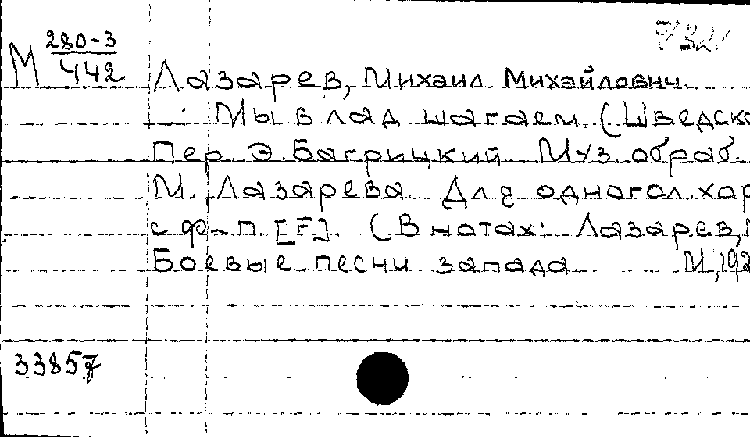 М 280-3
442
Лазарев, Михаил Михайлович.
Мы в лад шагаем. (Шведск
Пер. Э. Багрицкий. Муз. обраб.
М. Лазарева. Для одногол. хор
с ф-п. [F]. (В нотах: Лазарев,
Боевые песни запада М., 192
33857